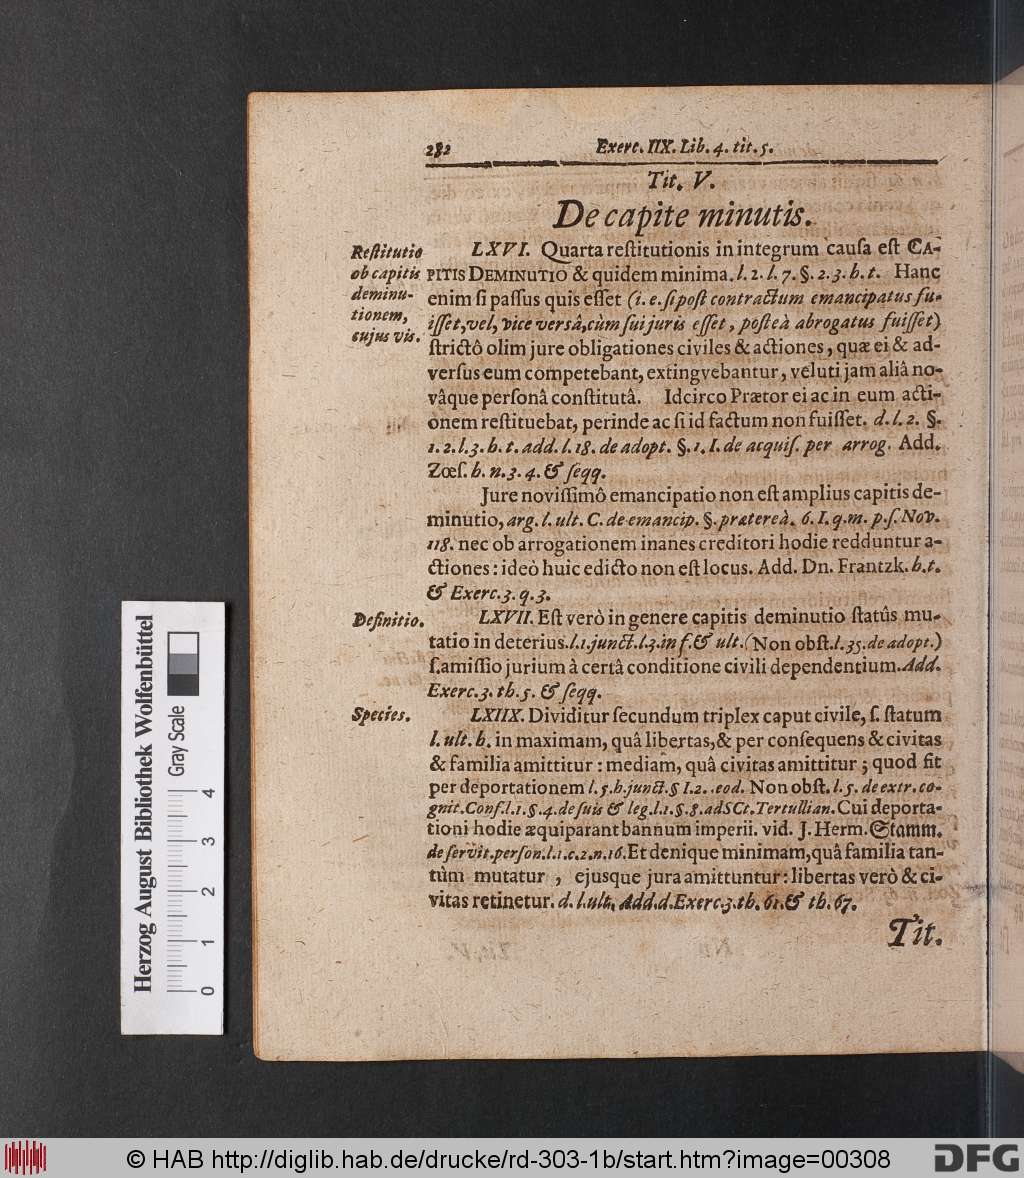 282 Exerc. IIX. Lib. 4. tit. 5.
Tit. V.
De capite minutis.
Reſtitutio
ob capitis
deminu-
tionem,
cujus vis.
LXVI. Quarta reſtitutionis in integrum cauſa eſt CA-
PITIS DEMINUTIO & quidem minima. l. 2. l. 7. §. 2. 3. h. t. Hanc
enim ſi paſſus quis eſſet (i. e. ſi poſt contractum emancipatus fu-
iſſet, vel, vice versâ, cùm ſui juris eſſet, poſteà abrogatus fuiſſet)
ſtrictô olim jure obligationes civiles & actiones, quæ ei & ad-
verſus eum competebant, extingvebantur, veluti jam aliâ no-
vâque perſonâ conſtitutâ. Idcirco Prætor ei ac in eum acti-
onem reſtituebat, perinde ac ſi id factum non fuiſſet. d. l. 2. §.
1. 2. l. 3. h. t. add. l. 18. de adopt. §. 1. I. de acquiſ. per arrog. Add.
Zœſ. h. n. 3. 4. & ſeqq.
Jure noviſſimô emancipatio non eſt amplius capitis de-
minutio, arg. l. ult. C. de emancip. §. prætereà. 6. I. q. m. p. ſ. Nov.
118. nec ob arrogationem inanes creditori hodie redduntur a-
ctiones: ideò huic edicto non eſt locus. Add. Dn. Frantzk. h. t.
& Exerc. 3. q. 3.
Definitio.
LXVII. Eſt verò in genere capitis deminutio ſtatûs mu-
tatio in deterius. l. 1. junct. l. 3. in f. & ult. (Non obſt. l. 35. de adopt.)
ſ. amiſſio jurium à certâ conditione civili dependentium. Add.
Exerc. 3. th. 5. & ſeqq.
Species.
LXIIX. Dividitur ſecundum triplex caput civile, ſ. ſtatum
l. ult. h. in maximam, quâ libertas, & per conſequens & civitas
& familia amittitur: mediam, quâ civitas amittitur; quod fit
per deportationem l. 5. h. junct. § I. 2. . eod. Non obſt. l. 5. de extr. co-
gnit. Conf. l. 1. §. 4. de ſuis & leg. l. 1. §. 8. ad SCt. Tertullian. Cui deporta-
tioni hodie æquiparant bannum imperii. vid. J. Herm. Stamm.
de ſervit. perſon. l. 1. c. 2. n. 16. Et denique minimam, quâ familia tan-
tùm mutatur, ejusque jura amittuntur: libertas verò & ci-
vitas retinetur. d. l. ult. Add. d. Exerc. 3. th. 61. & th. 67.
Tit.
Herzog August Bibliothek Wolfenbüttel
Gray Scale
0 1 2 3 4
© HAB http://diglib.hab.de/drucke/rd-303-1b/start.htm?image=00308
DFG